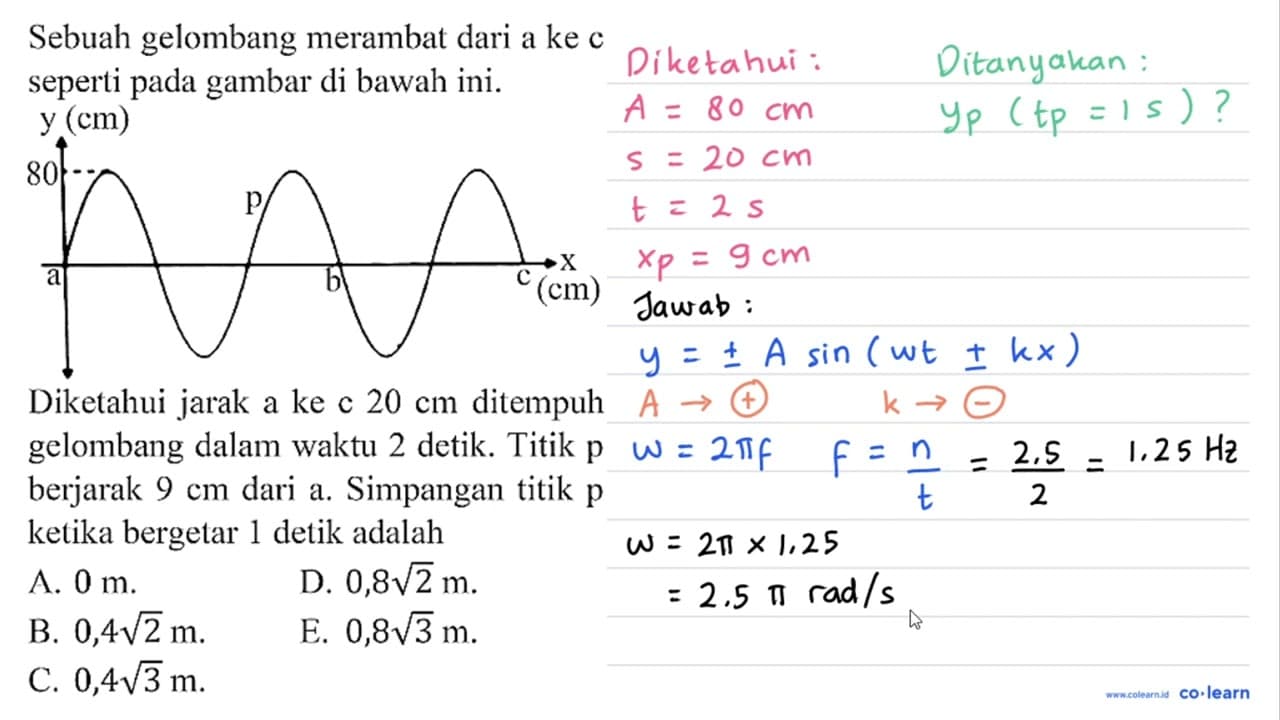 Sebuah gelombang merambat dari a ke c
seperti pada gambar di bawah ini.
y (cm)
80
p
a
b
c
x
(cm)
Diketahui jarak a ke c 20 cm ditempuh
gelombang dalam waktu 2 detik. Titik p
berjarak 9 cm dari a. Simpangan titik p
ketika bergetar 1 detik adalah
A. 0 m.
D. 0,8√2 m.
B. 0,4√2 m.
E. 0,8√3 m.
C. 0,4√3 m.
Diketahui :
A = 80 cm
s = 20 cm
t = 2 s
xp = 9 cm
Ditanyakan :
yp (tp = 1 s) ?
Jawab :
y = ± A sin (ωt ± kx)
A → (+)
k → (−)
ω = 2πf
f = n/t = 2,5/2 = 1,25 Hz
ω = 2π × 1,25
= 2,5 π rad/s
www.colearn.id
co·learn